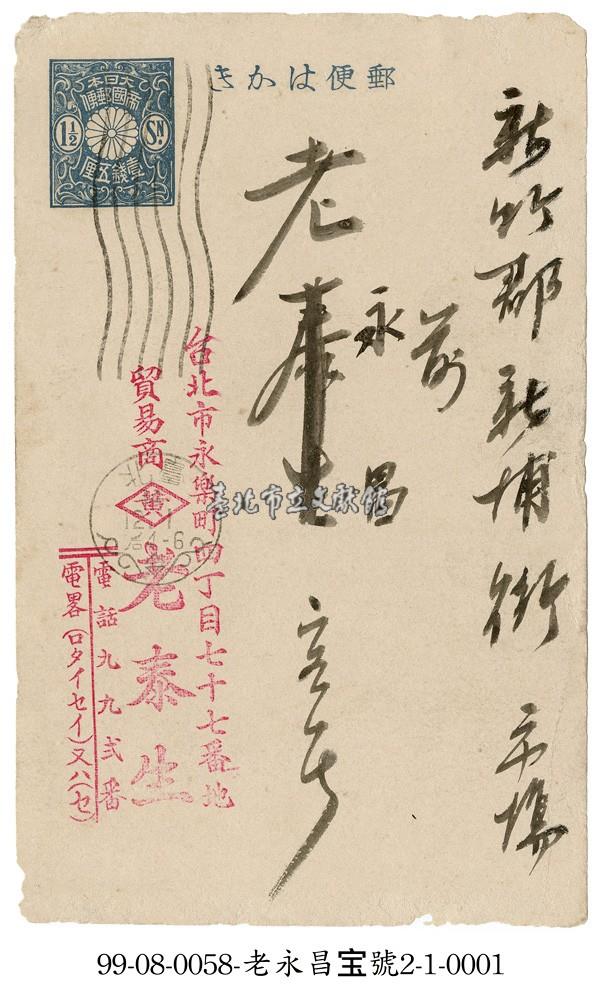 郵便はかき
大日本
帝國郵便
1½ SN.
壹錢五厘
新竹郡新埔街 市場前
老永昌 宝号
台北市永樂町四丁目七十七番地
貿易商
黃 老泰生
電話九九弍番
電畧(ロタイセイ)又ハ(セ)
臺北市立文獻館
99-08-0058-老永昌宝號2-1-0001